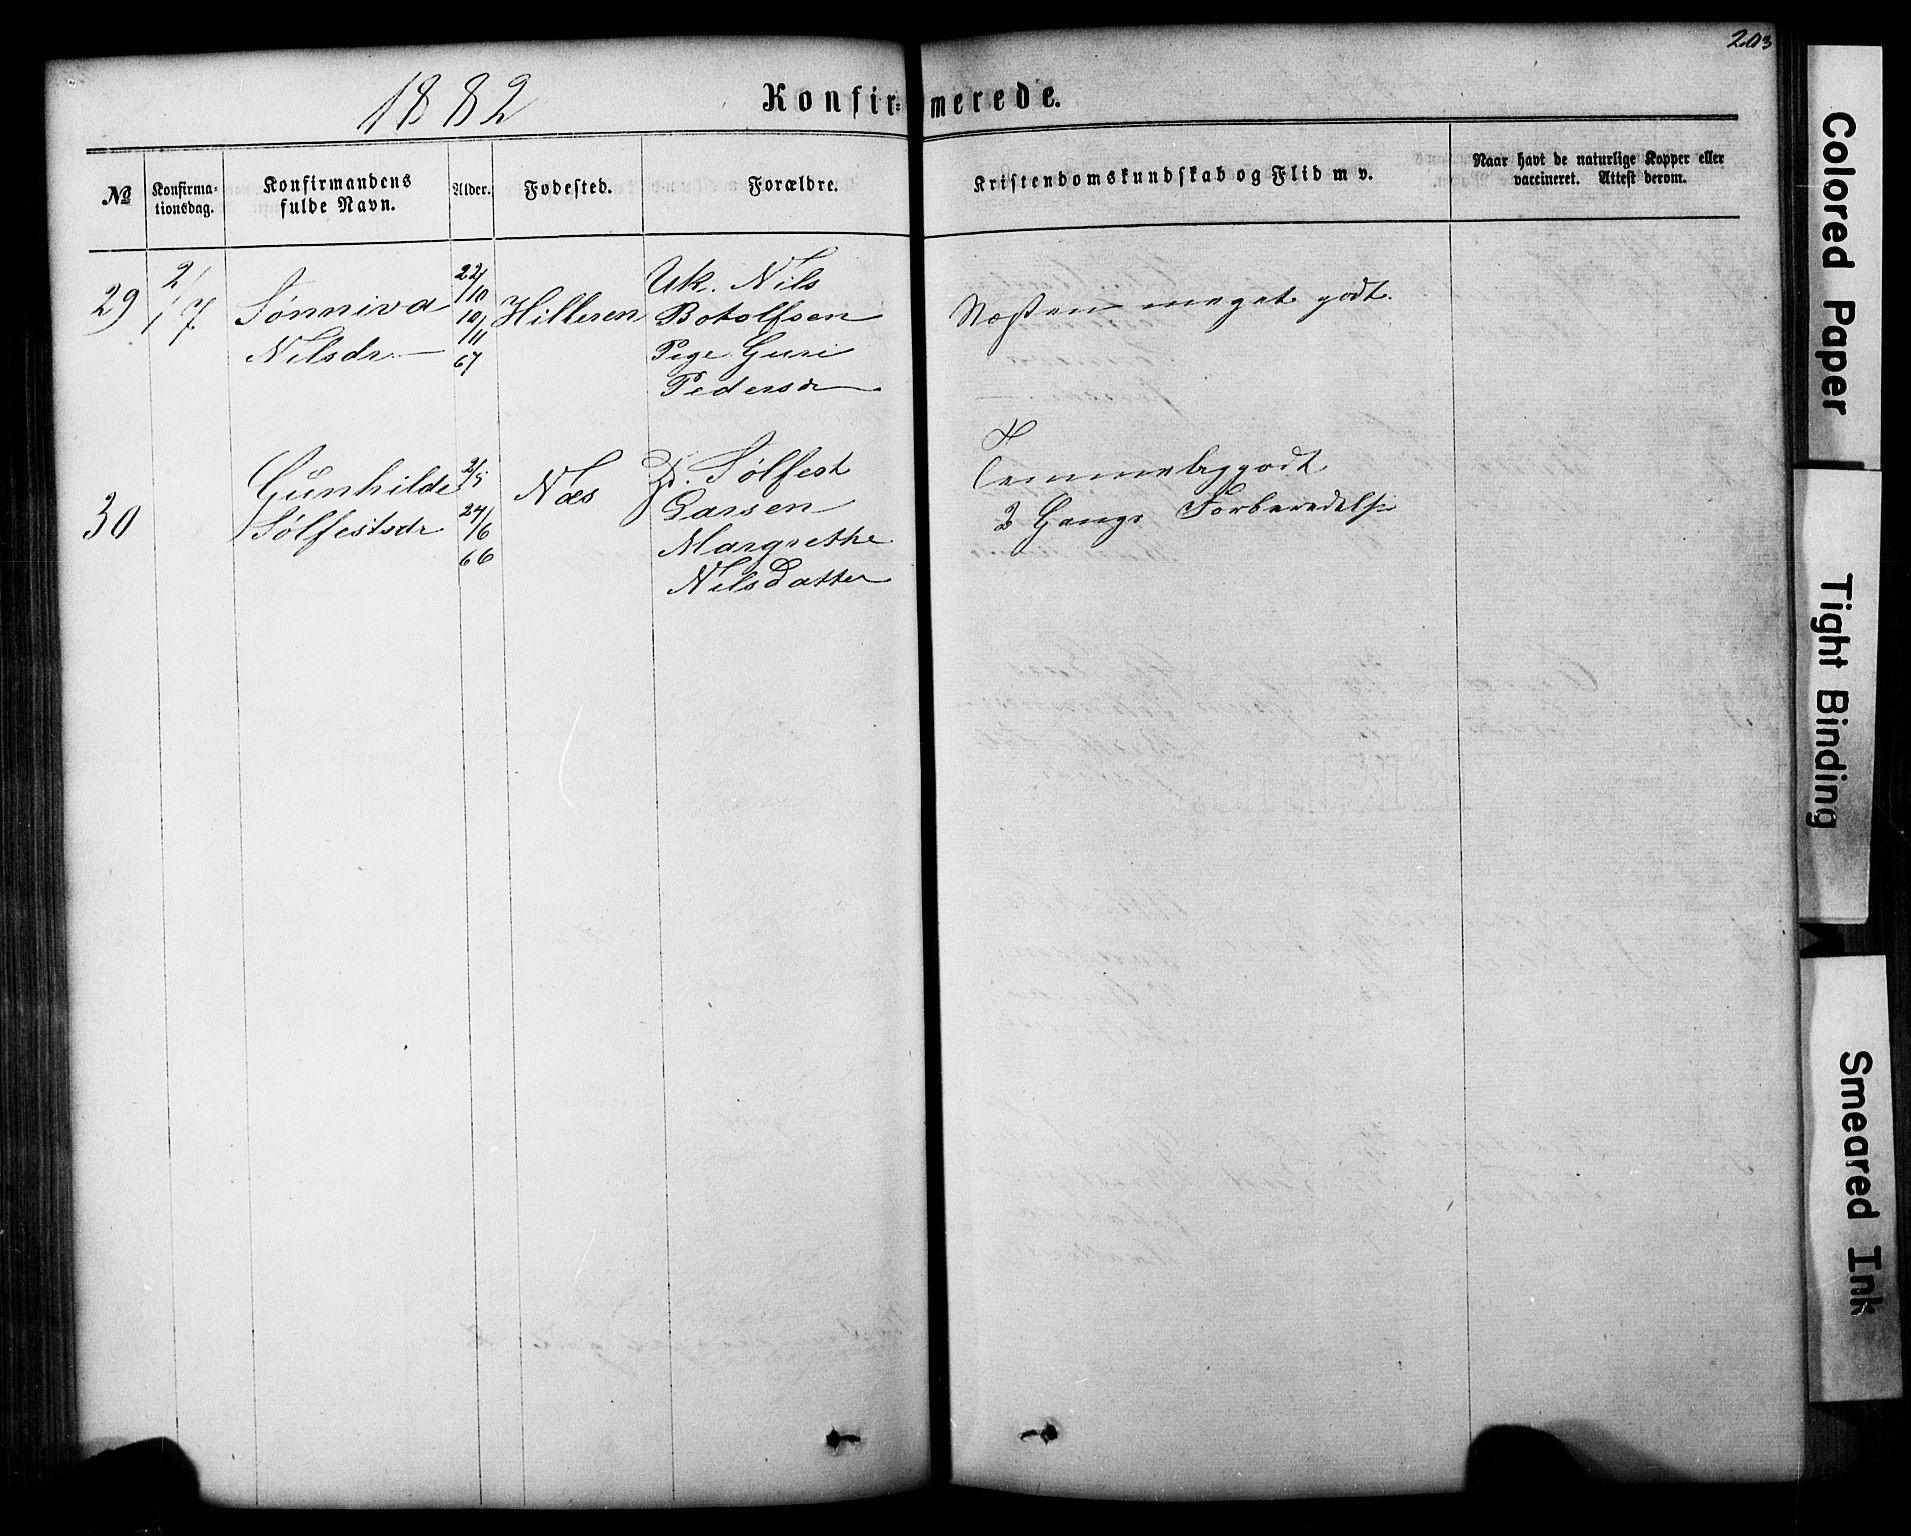 203
1882
Konfir=merede.
No
Konfirma=
tionsdag.
Konfirmandens
fulde Navn.
Alder.
Fødested.
Forældre.
Kristendomskundskab og Flid m v.
Naar havt de naturlige Kopper eller
vaccineret. Attest derom.
29
2/7
Sønniva
Nilsdr
22/10
10/11
67
Hilleren
Uk. Nils
Botolfsen
Pige Guri
Pedersdr
Næsten meget godt.
30
Gunhilde
Sølfestsdr
2/5
24/6
66
Næs
Sølfest
Larsen
Margrethe
Nilsdatter
Temmelig godt
2 Gangs Forberedelse
Colored Paper
Tight Binding
Smeared Ink